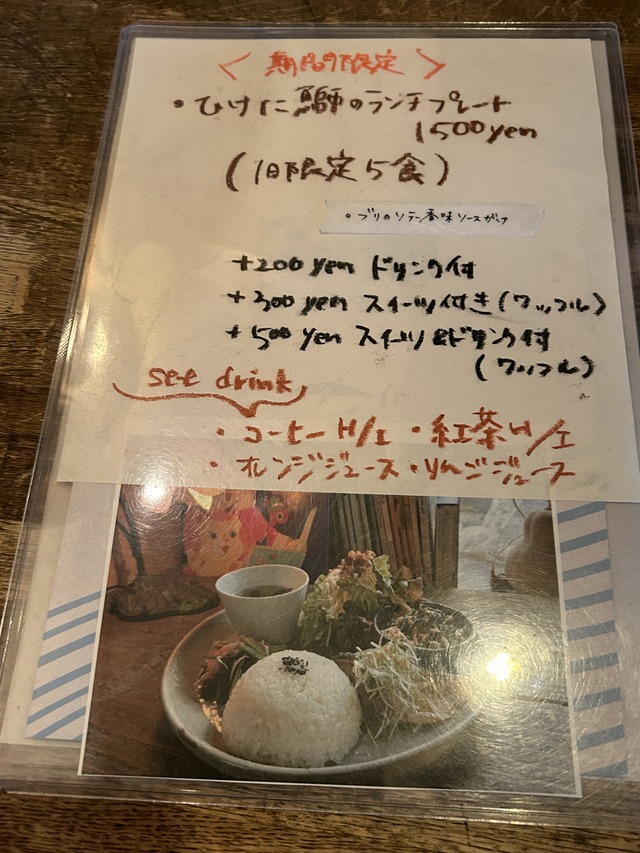 <期間限定>
・ひけた鰤のランチプレート
1500yen
(1日限定5食)
・ブリのソテー香味ソースがけ
+200yen ドリンク付
+300yen スイーツ付き(ワッフル)
+500yen スイーツ&ドリンク付
(ワッフル)
see drink
・コーヒーH/I ・紅茶H/I
・オレンジジュース・りんごジュース